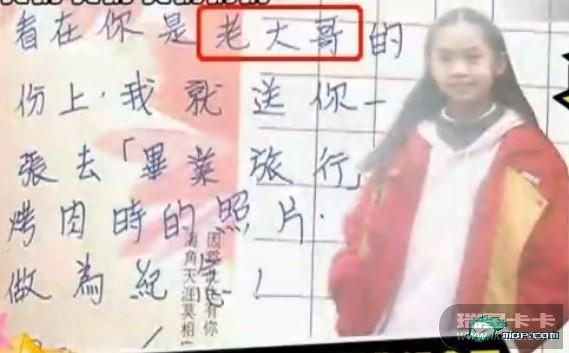 看在你是老大哥的
份上，我就送你一
張去「畢業旅行」
烤肉時的照片．
做為紀念！
海角天涯莫相
瑞丽卡卡
MOP.COM